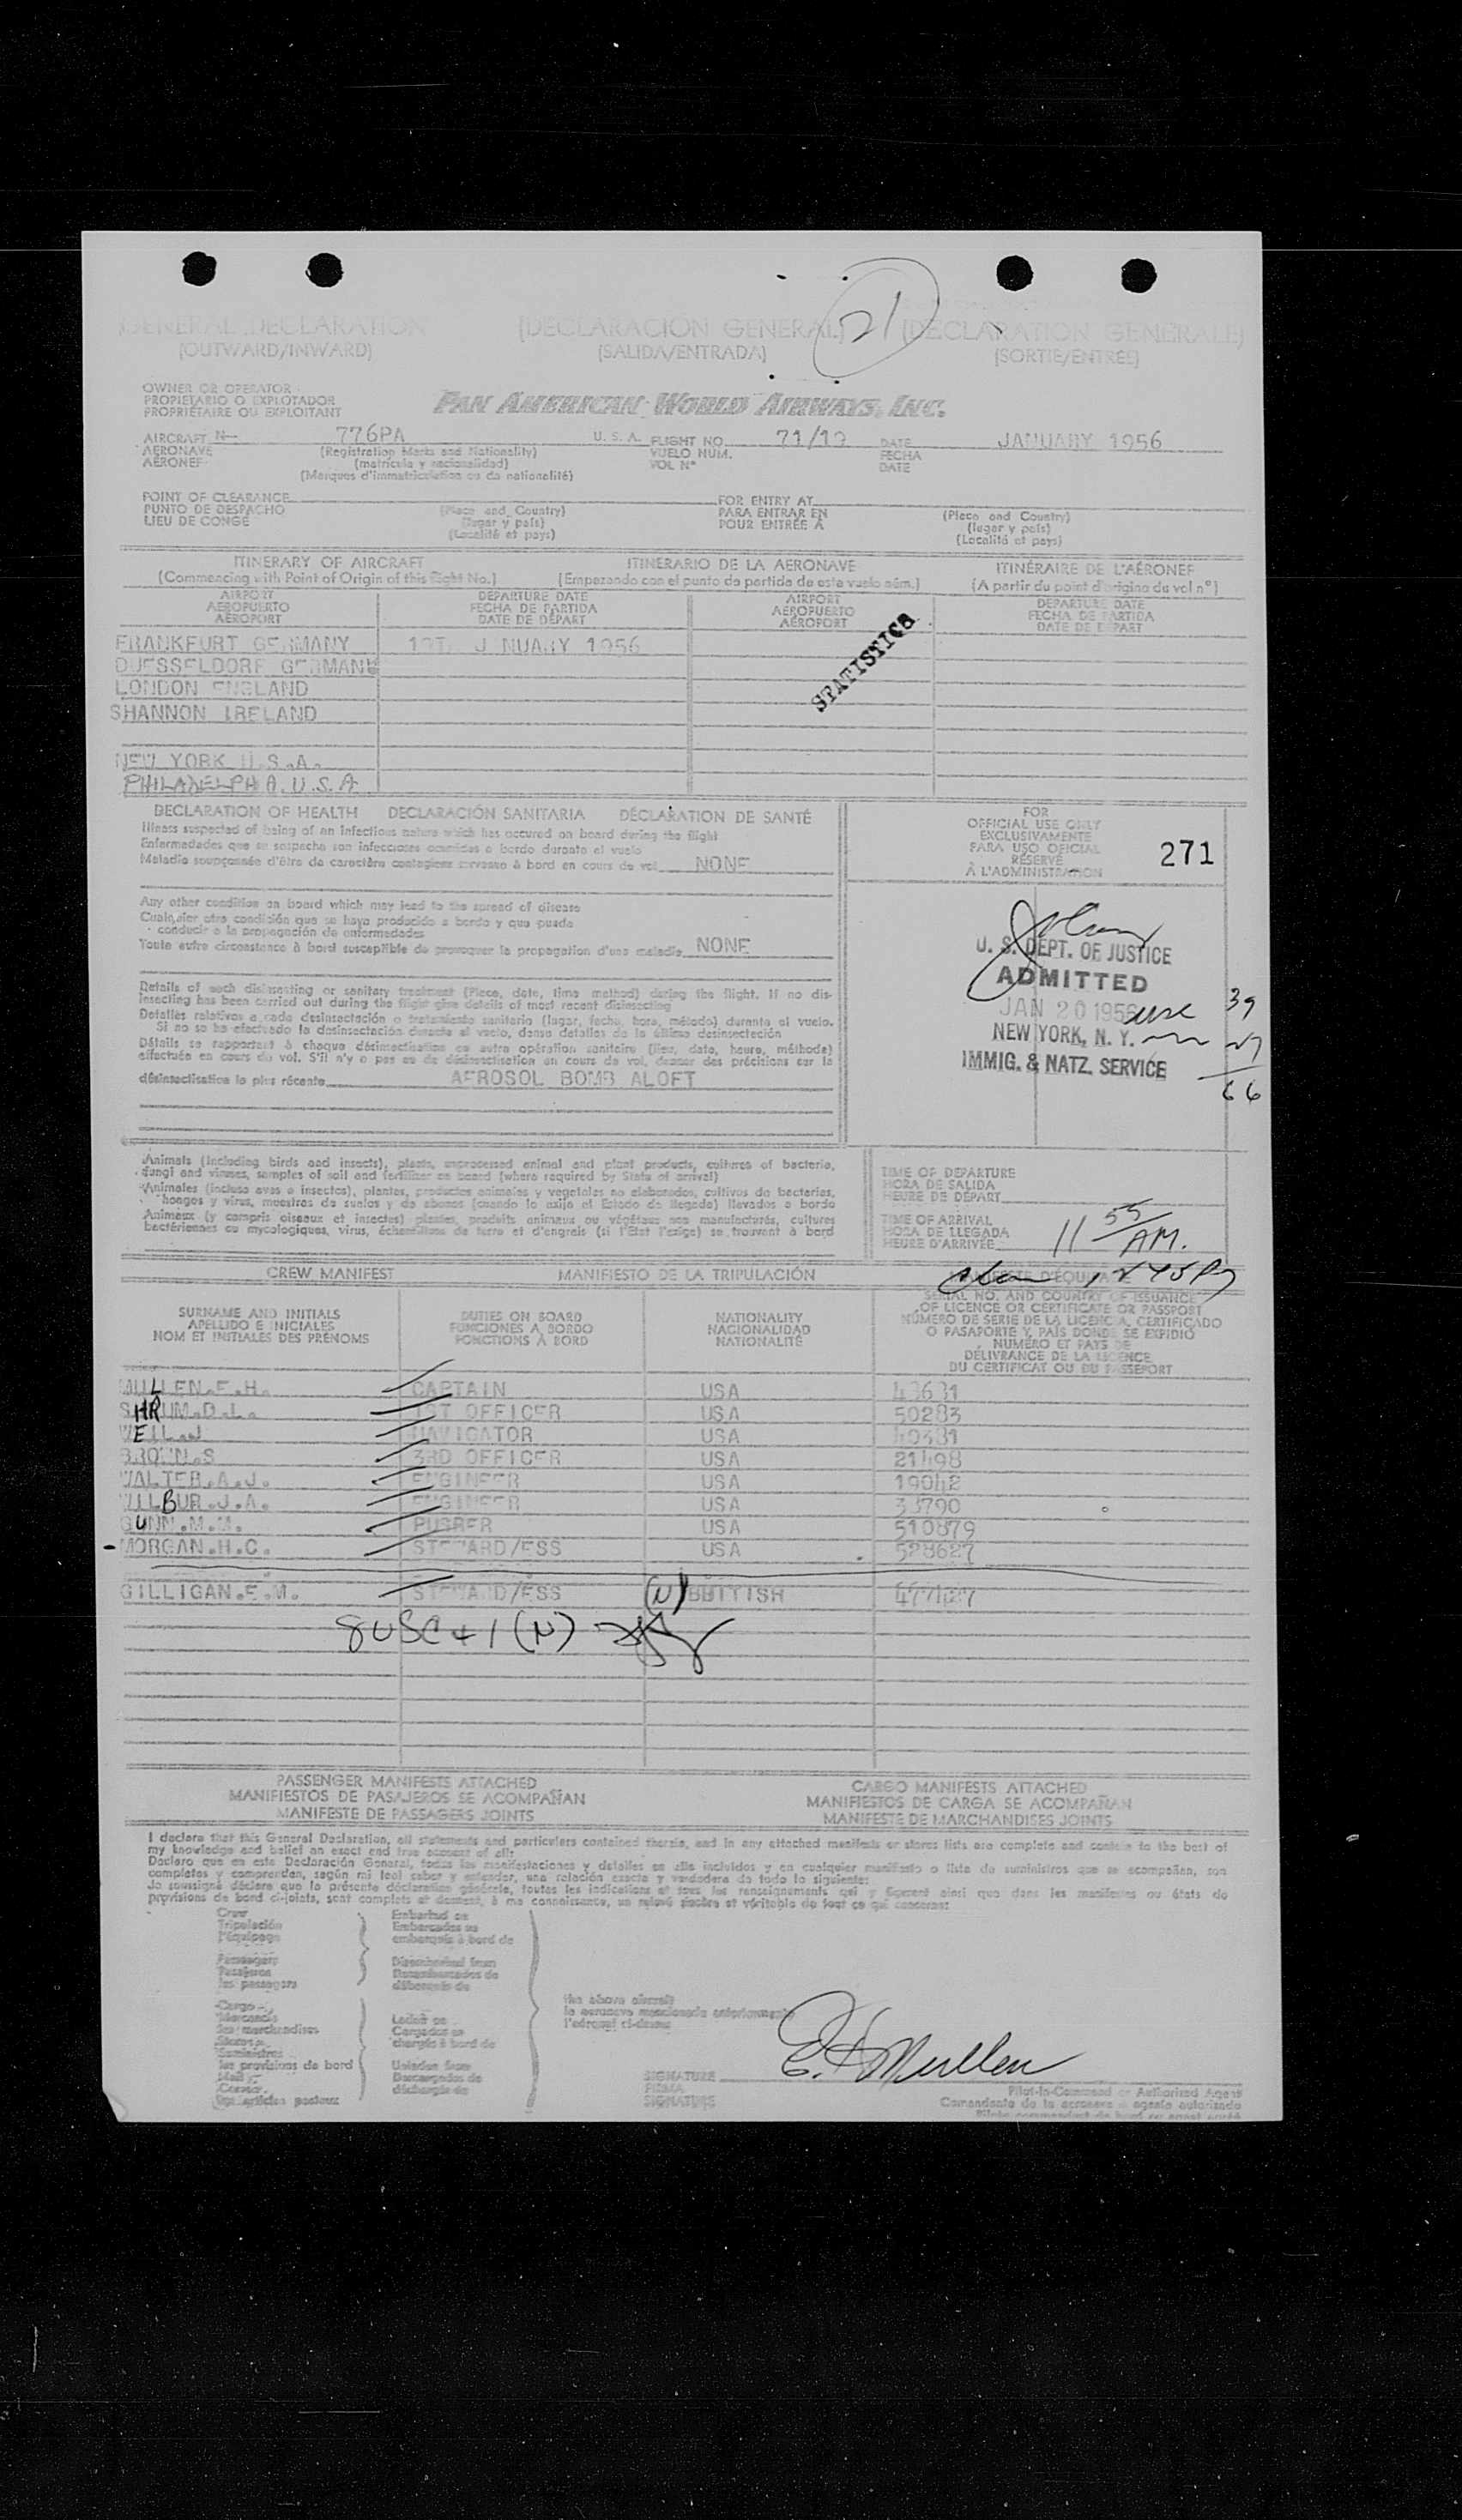 21
[GENERAL DECLARATION [DECLARACION GENERAL] [DECLARATION GENERALE]
[OUTWARD/INWARD] [SALIDA/ENTRADA] [SORTIE/ENTRÉE]
OWNER OR OPERATOR
PROPIETARIO O EXPLOTADOR
PROPRIÉTAIRE OU EXPLOITANT
PAN AMERICAN WORLD AIRWAYS, INC.
AIRCRAFT N— 776PA U. S. A. FLIGHT NO. 71/19 DATE JANUARY 1956
AERONAVE (Registration Marks and Nationality) VUELO NUM. FECHA
AÉRONEF (matrícula y nacionalidad) VOL N° DATE
(Marques d'immatriculation ou de nationalité)
POINT OF CLEARANCE FOR ENTRY AT
PUNTO DE DESPACHO (Place and Country) PARA ENTRAR EN (Place and Country)
LIEU DE CONGÉ (lugar y país) POUR ENTRÉE À (lugar y país)
(Localité et pays) (Localité et pays)
ITINERARY OF AIRCRAFT ITINERARIO DE LA AERONAVE ITINÉRAIRE DE L'AÉRONEF
(Commencing with Point of Origin of this flight No.) (Empezando con el punto de partida de este vuelo núm.) (A partir du point d'origine du vol n°)
AIRPORT DEPARTURE DATE AIRPORT DEPARTURE DATE
AEROPUERTO FECHA DE PARTIDA AEROPUERTO FECHA DE PARTIDA
AÉROPORT DATE DE DÉPART AÉROPORT DATE DE DÉPART
STATISTICS
FRANKFURT GERMANY JANUARY 1956
DUESSELDORF GERMANY
LONDON ENGLAND
SHANNON IRELAND
NEW YORK U.S.A.
PHILADELPHIA. U.S.A.
DECLARATION OF HEALTH DECLARACIÓN SANITARIA DÉCLARATION DE SANTÉ
Illness suspected of being of an infectious nature which has occured on board during the flight
Enfermedades que se sospecha son infecciosas ocurridas a bordo durante el vuelo
Maladie soupçonnée d'être de caractère contagieux survenue à bord en cours de vol NONE
Any other condition on board which may lead to the spread of disease
Cualquier otra condición que se haya producido a bordo y que pueda
conducir a la propagación de enfermedades
Toute autre circonstance à bord susceptible de provoquer la propagation d'une maladie NONE
Details of each disinsecting or sanitary treatment (Place, date, time method) during the flight. If no dis-
insecting has been carried out during the flight give details of most recent disinsecting
Detalles relativos a cada desinsectación o tratamiento sanitario (lugar, fecha, hora, método) durante el vuelo.
Si no se ha efectuado la desinsectación durante el vuelo, danse detalles de la última desinsectación
Détails se rapportant à chaque désinsectisation ou autre opération sanitaire (lieu, date, heure, méthode)
effectuée en cours du vol. S'il n'y a pas eu de désinsectisation en cours de vol, donner des précisions sur la
désinsectisation la plus récente AEROSOL BOMB ALOFT
FOR
OFFICIAL USE ONLY
EXCLUSIVAMENTE
PARA USO OFICIAL
RÉSERVÉ
À L'ADMINISTRATION
271
U. S. DEPT. OF JUSTICE
ADMITTED
JAN 20 1956 usc 39
NEW YORK, N. Y. 27
IMMIG. & NATZ. SERVICE
66
Animals (Including birds and insects), plants, unprocessed animal and plant products, cultures of bacteria,
fungi and viruses, samples of soil and fertilizer on board (where required by State of arrival)
Animales (incluso aves e insectos), plantas, productos animales y vegetales no elaborados, cultivos de bacterias,
hongos y virus, muestras de suelos y de abonos (cuando lo exija el Estado de llegada) llevados a bordo
Animaux (y compris oiseaux et insectes) plantes, produits animaux ou végétaux non manufacturés, cultures
bactériennes ou mycologiques, virus, échantillons de terre et d'engrais (si l'Etat l'exige) se trouvant à bord
TIME OF DEPARTURE
HORA DE SALIDA
HEURE DE DÉPART
TIME OF ARRIVAL
HORA DE LLEGADA
HEURE D'ARRIVÉE 11 55 AM.
CREW MANIFEST MANIFIESTO DE LA TRIPULACIÓN
SURNAME AND INITIALS DUTIES ON BOARD NATIONALITY SERIAL NO. AND COUNTRY OF ISSUANCE
APELLIDO E INICIALES FUNCIONES A BORDO NACIONALIDAD OF LICENCE OR CERTIFICATE OR PASSPORT
NOM ET INITIALES DES PRÉNOMS FONCTIONS À BORD NATIONALITÉ NÚMERO DE SERIE DE LA LICENCIA, CERTIFICADO
O PASAPORTE Y PAÍS DONDE SE EXPIDIÓ
NUMÉRO ET PAYS DE
DÉLIVRANCE DE LA LICENCE
DU CERTIFICAT OU DU PASSEPORT
MULLEN.E.H. CAPTAIN USA 43631
SHRUM.D.L. 1ST OFFICER USA 50283
WEIL.J NAVIGATOR USA 49381
BROWN.S 3RD OFFICER USA 21498
WALTER.A.J. ENGINEER USA 19042
WILBUR.J.A. ENGINEER USA 33790
GUNN.M.M. PURSER USA 510879
MORGAN.H.C. STEWARD/ESS USA 528627
GILLIGAN.E.M. STEWARD/ESS (N) BRITISH 477427
8 USC + 1 (N)
PASSENGER MANIFESTS ATTACHED CARGO MANIFESTS ATTACHED
MANIFIESTOS DE PASAJEROS SE ACOMPAÑAN MANIFIESTOS DE CARGA SE ACOMPAÑAN
MANIFESTE DE PASSAGERS JOINTS MANIFESTE DE MARCHANDISES JOINTS
I declare that this General Declaration, all statements and particulars contained therein, and in any attached manifests or stores lists are complete and contain to the best of
my knowledge and belief an exact and true account of all:
Declaro que en esta Declaración General, todas las manifestaciones y detalles en ella incluidos y en cualquier manifiesto o lista de suministros que se acompañan, son
completos y comprenden, según mi leal saber y entender, una relación exacta y verdadera de todo lo siguiente:
Je soussigné déclare que la présente déclaration générale, toutes les indications et tous les renseignements qui y figurent ainsi que dans les manifestes ou états de
provisions de bord ci-joints, sont complets et donnent, à ma connaissance, un relevé sincère et véritable de tout ce qui concerne:
Crew Embarked on
Tripulación Embarcados en
l'équipage embarqués à bord de
Passengers Disembarked from
Pasajeros Desembarcados de
les passagers débarqués de
the above aircraft
la aeronave mencionada anteriormente
l'aéronef ci-dessus
Cargo Laden on
Mercancía Cargados en
les marchandises chargés à bord de
Stores
Suministros
les provisions de bord Unladen from
Mail Descargados de
Correo déchargés de
les articles postaux
SIGNATURE E.H Mullen
FIRMA
SIGNATURE
Pilot-in-Command or Authorized Agent
Comandante de la aeronave o agente autorizado